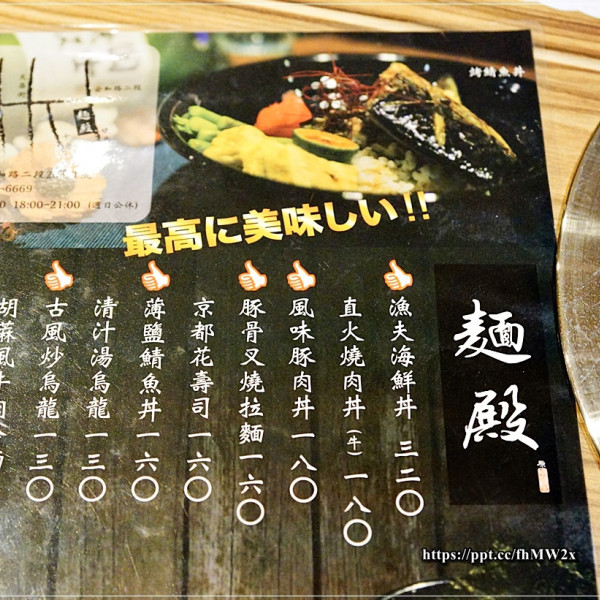 烤鯖魚丼
安和路二段
和路二段
-6669
0 18:00-21:00 (週日公休)
最高に美味しい!!
麵殿
漁夫海鮮丼 三二〇
直火燒肉丼(牛) 一八〇
風味豚肉丼 一八〇
豚骨叉燒拉麵 一六〇
京都花壽司 一六〇
薄鹽鯖魚丼 一六〇
清汁湯烏龍 一三〇
古風炒烏龍 一三〇
胡蔴風牛肉
https://ppt.cc/fhMW2x